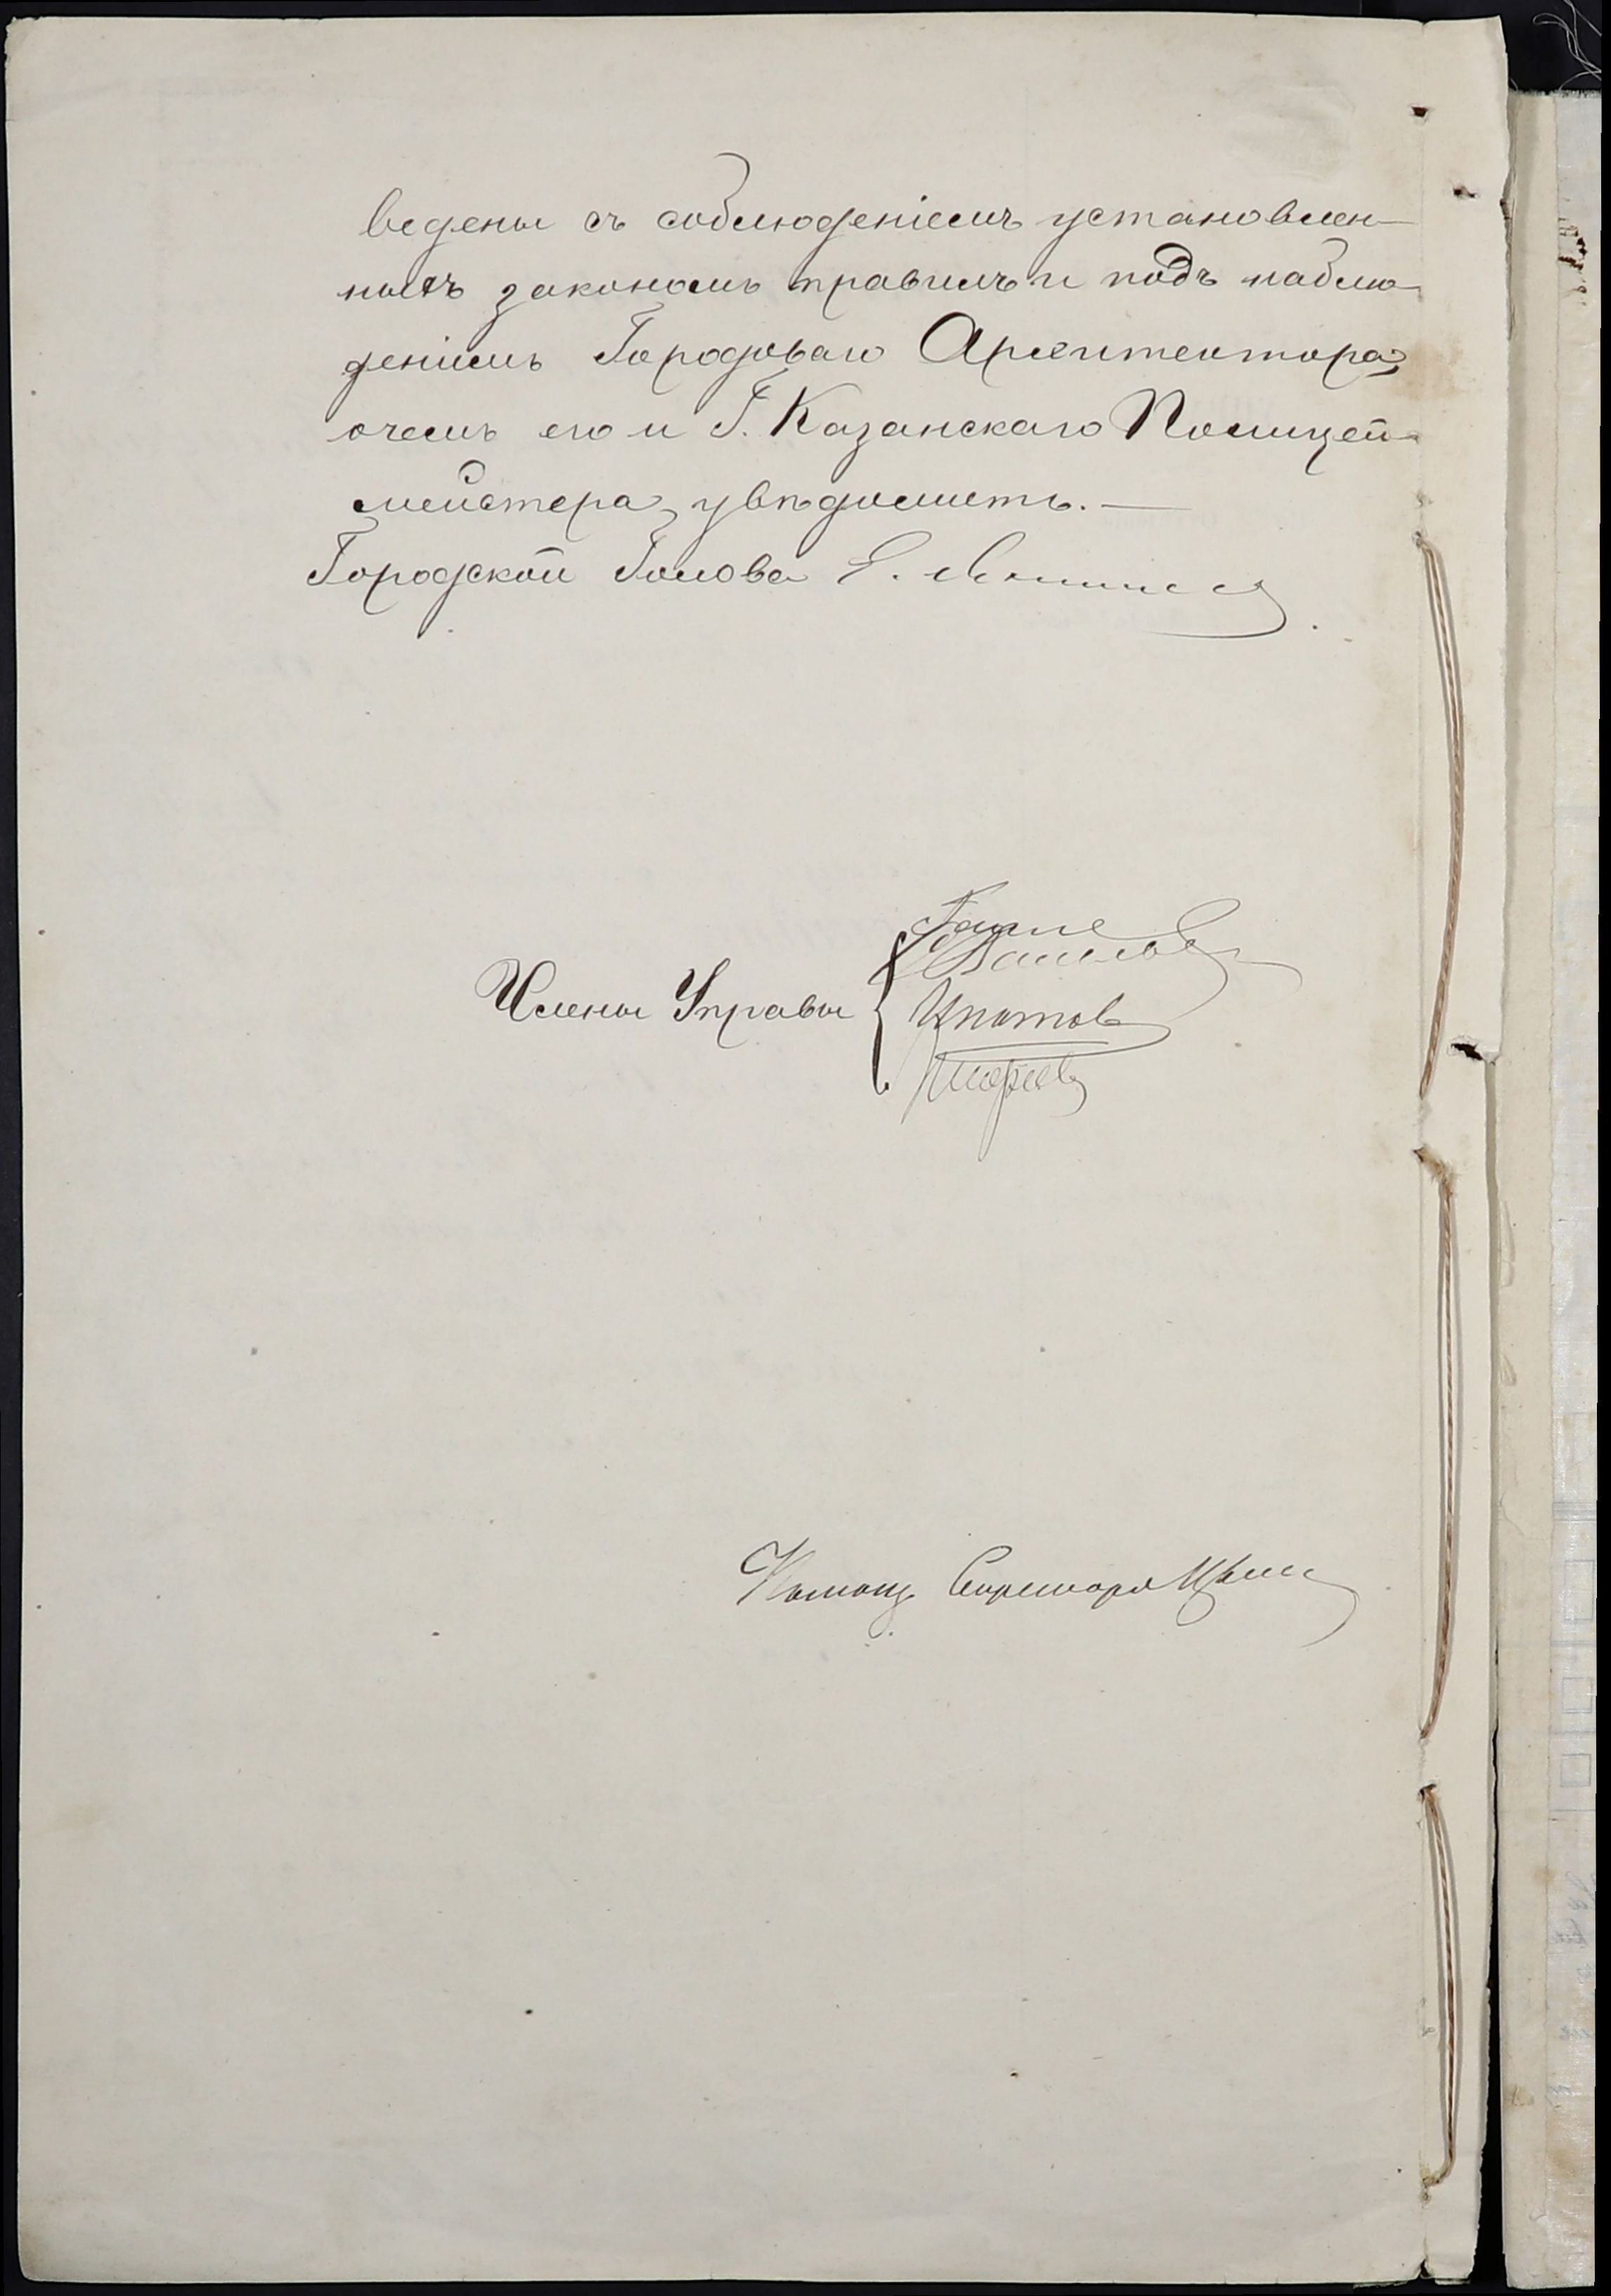 ведены съ соблюденіемъ установлен-
ныхъ закономъ правилъ и подъ наблю-
деніемъ Городоваго Архитектора,
о чемъ его и Г. Казанскаго Полицей-
мейстера увѣдомить. —
Городской Голова Е.
Члены Управы
Ипатов
Помощ Секретаря